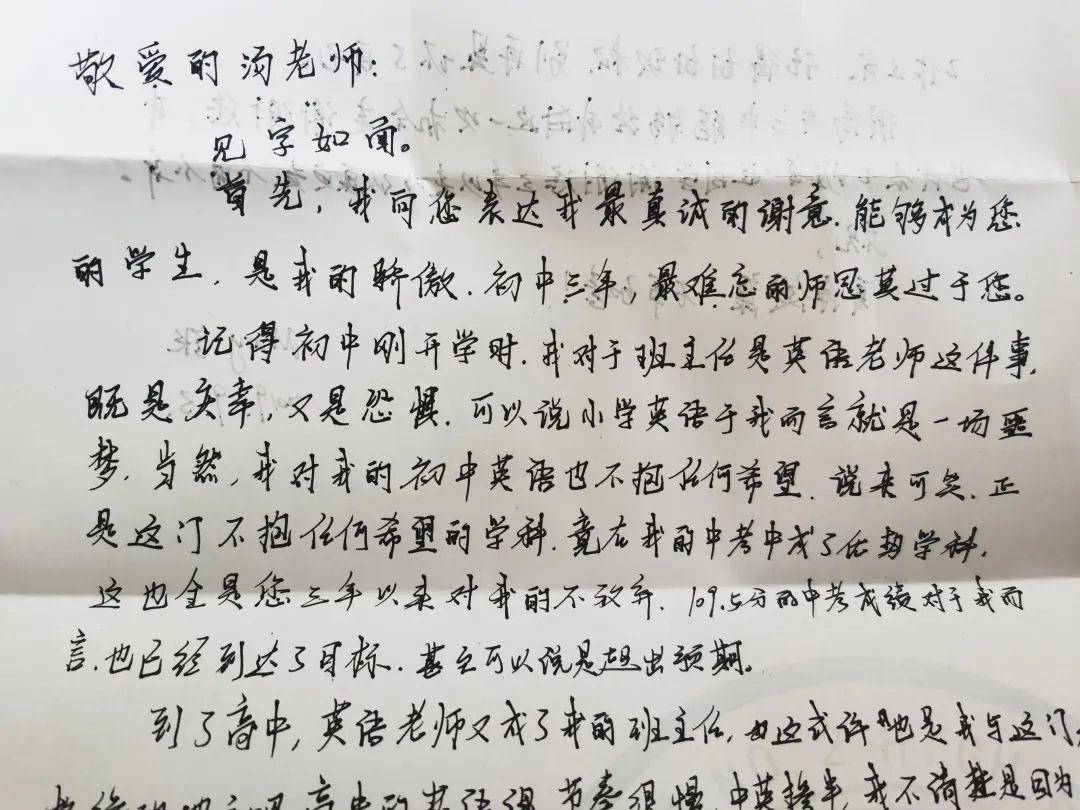 敬爱的汤老师:
见字如面。
首先,我向您表达我最真诚的谢意.能够成为您
的学生,是我的骄傲.初中三年,最难忘的师恩莫过于您。
记得初中刚开学时.我对于班主任是英语老师这件事,
既是庆幸,又是恐惧.可以说小学英语于我而言就是一场噩
梦,当然,我对我的初中英语也不抱任何希望.说来可笑.正
是这门不抱任何希望的学科.竟在我的中考中成了优势学科.
这也全是您三年以来对我的不放弃.109.5分的中考成绩对于我而
言.也已经到达了目标.甚至可以说是超出预期。
到了高中,英语老师又成了我的班主任,这或许也是我与这门
高中的英语课 节奏很慢 中英掺半 我不清楚是因为